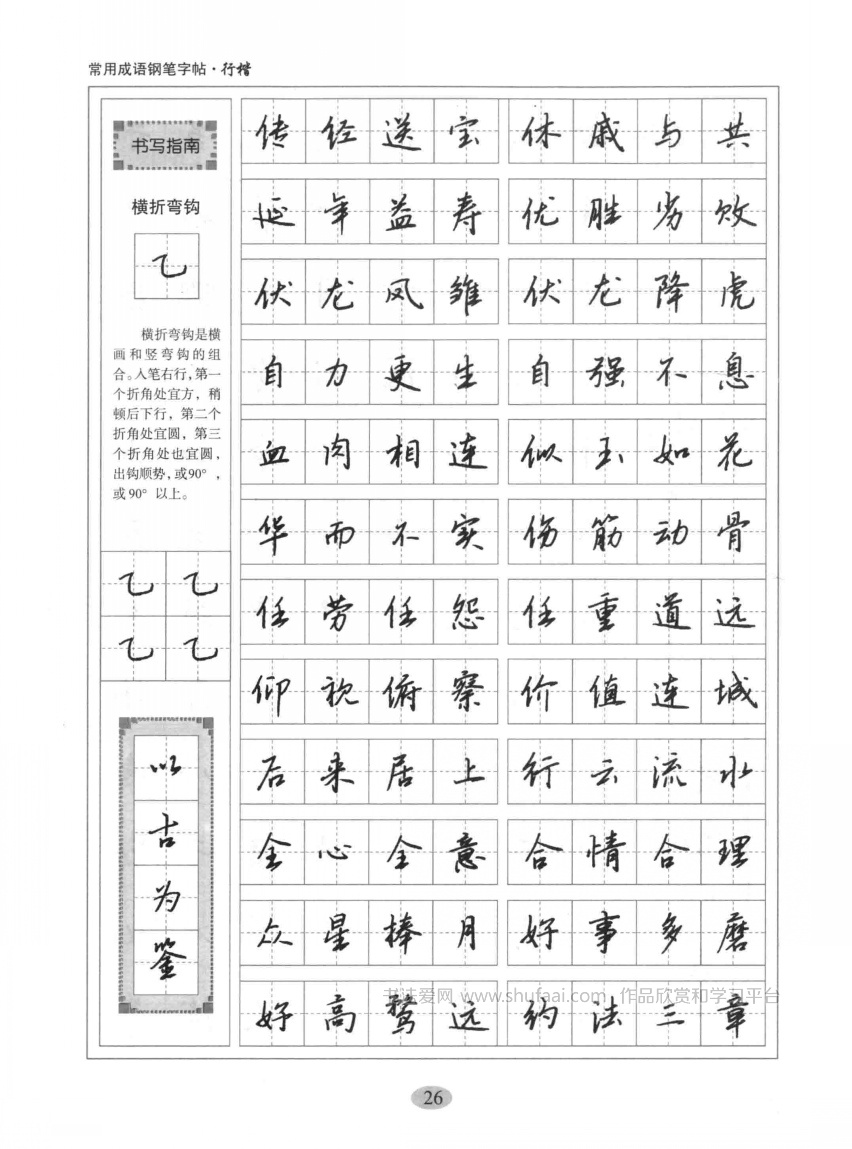 常用成语钢笔字帖·行楷
书写指南
横折弯钩
乙
横折弯钩是横
画和竖弯钩的组
合。入笔右行,第一
个折角处宜方，稍
顿后下行，第二个
折角处宜圆，第三
个折角处也宜圆，
出钩顺势,或90°，
或90°以上。
乙 乙
乙 乙
以
古
为
鉴
传经送宝 休戚与共
延年益寿 优胜劣败
伏龙凤雏 伏龙降虎
自力更生 自强不息
血肉相连 似玉如花
华而不实 伤筋动骨
任劳任怨 任重道远
仰视俯察 价值连城
后来居上 行云流水
全心全意 合情合理
众星捧月 好事多磨
好高骛远 约法三章
书法爱网 www.shufaai.com 作品欣赏和学习平台
26